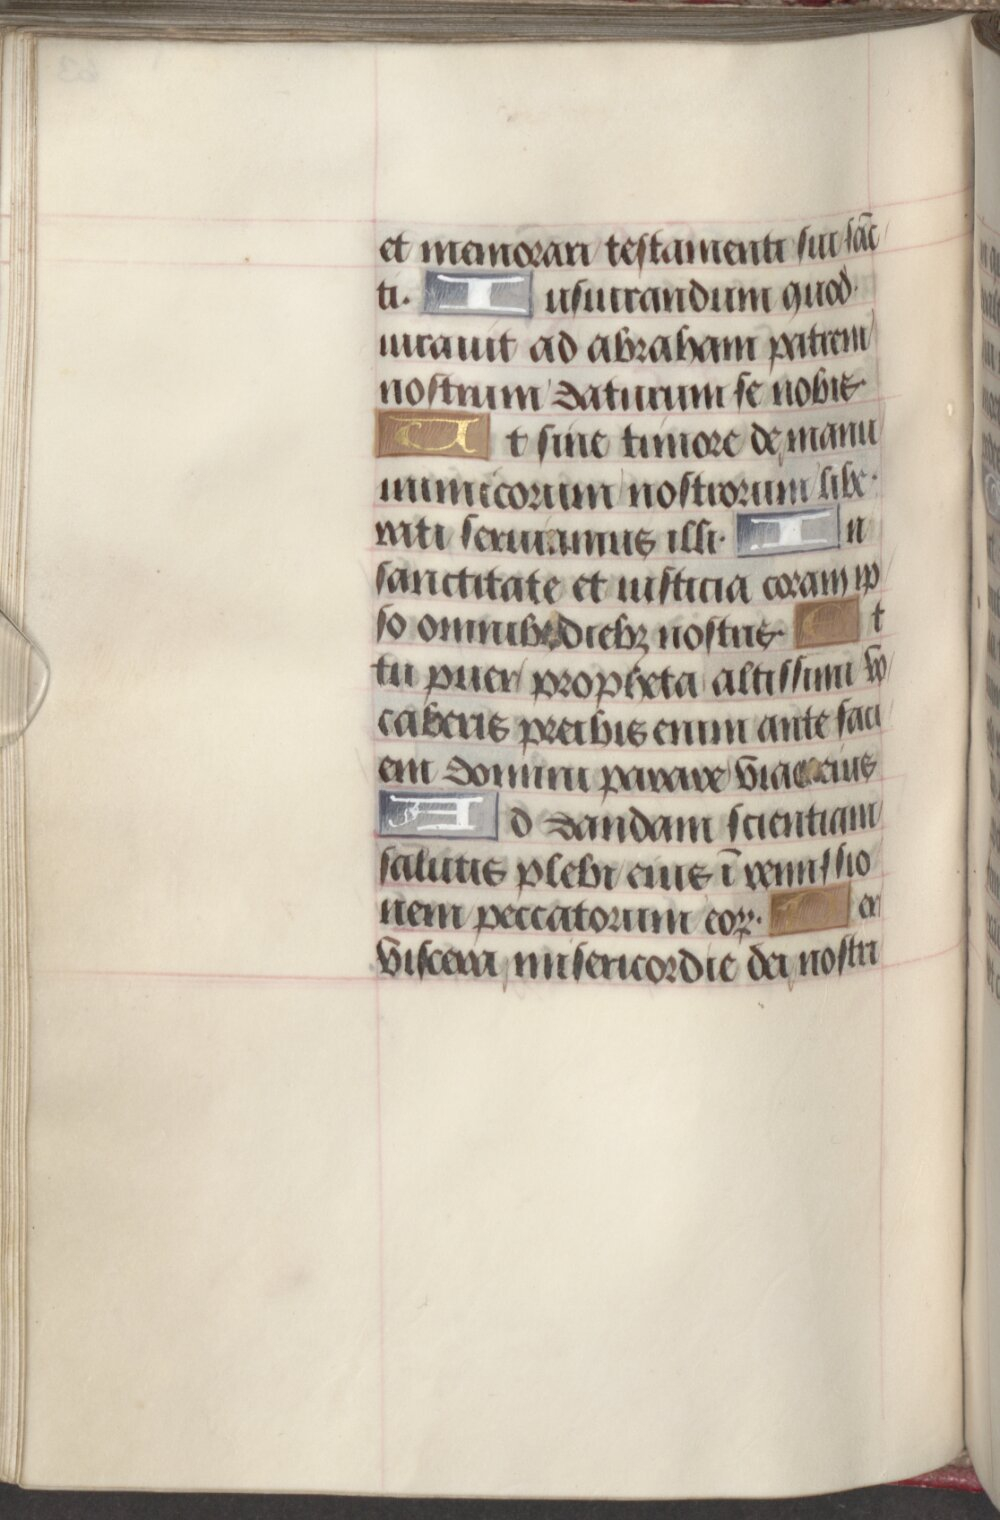 et memorari testamenti sui sāc
ti. I usiurandum quod
iurauit ad abraham patrem
nostrum daturum se nobis
U t sine timore de manu
inimicorum nostrorum libe
rati seruiamus illi. I n
sanctitate et iusticia coram ip
so omnibꝫ diebꝫ nostris E t
tu puer propheta altissimi vo
caberis preibis enim ante faci
em domini parare vias eius
A d dandam scientiam
salutis plebi eius ī remissio
nem peccatorum eoꝝ. P er
viscera misericordie dei nostri